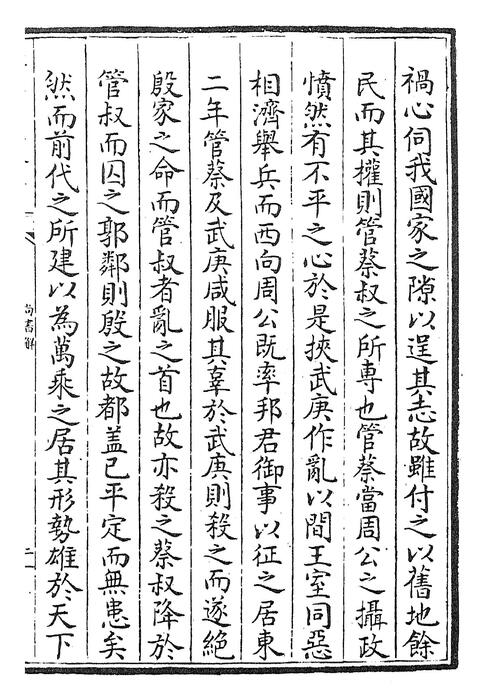 禍心伺我國家之隙以逞其志故雖付之以舊地餘
民而其權則管蔡叔之所専也管蔡當周公之攝政
憤然有不平之心於是挾武庚作亂以間王室同惡
相濟舉兵而西向周公既率邦君御事以征之居東
二年管蔡及武庚咸服其辜於武庚則殺之而遂絕
殷家之命而管叔者亂之首也故亦殺之蔡叔降於
管叔而囚之郭鄰則殷之故都盖已平定而無患矣
然而前代之所建以為萬乘之居其形勢雄於天下
尚書解